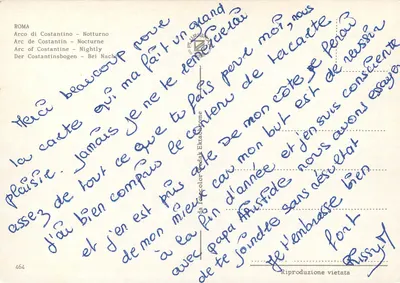 ROMA
Arco di Costantino - Notturno
Arc de Costantin - Nocturne
Arc of Costantine - Nightly
Der Costantinsbogen - Bei Nacht
Merci beaucoup pour
la carte qui m'a fait un grand
plaisir. Jamais je ne te remercierai
assez de tout ce que tu fais pour moi, nous
j'ai bien compris le contenu de ta carte
et j'en est pris acte De mon côté je ferai
de mon mieux car mon but est de réussir
à la fin d'année et j'en suis consciente
avec papa Aristide nous avons essayer
de te joindre sans résultat
Je t'embrasse bien
fort
464
Riproduzione vietata